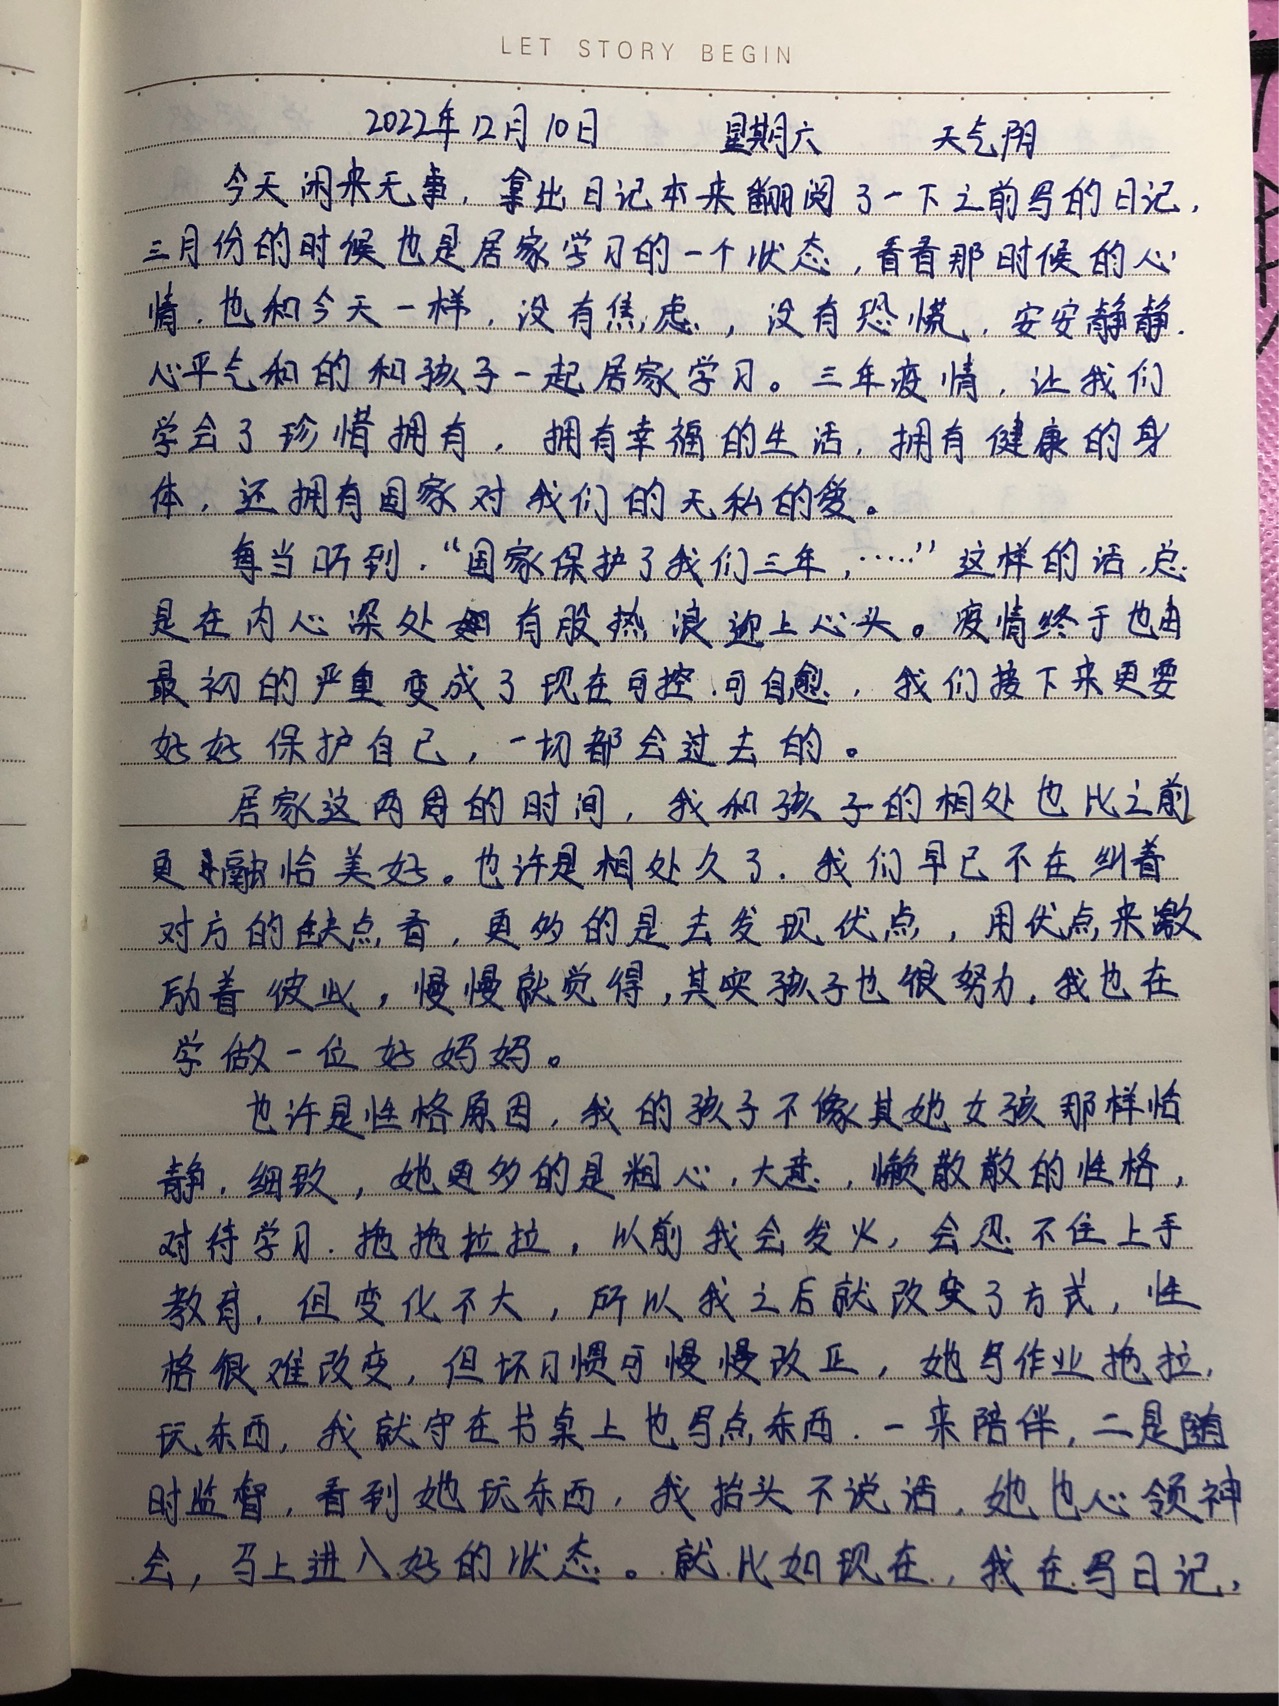 LET STORY BEGIN
2022年12月10日 星期六 天气阴
今天闲来无事，拿出日记本来翻阅了一下之前写的日记，
三月份的时候也是居家学习的一个状态，看看那时候的心
情，也和今天一样，没有焦虑，没有恐慌，安安静静，
心平气和的和孩子一起居家学习。三年疫情，让我们
学会了珍惜拥有，拥有幸福的生活，拥有健康的身
体，还拥有国家对我们的无私的爱。
每当听到，“国家保护了我们三年，……”这样的话，总
是在内心深处有股热浪迎上心头。疫情终于也由
最初的严重变成了现在可控、可自愈，我们接下来更要
好好保护自己，一切都会过去的。
居家这两周的时间，我和孩子的相处也比之前
更融恰美好。也许是相处久了，我们早已不在纠着
对方的缺点看，更多的是去发现优点，用优点来激
励着彼此，慢慢就觉得，其实孩子也很努力，我也在
学做一位好妈妈。
也许是性格原因，我的孩子不像其她女孩那样恬
静，细致，她更多的是粗心，大意，懒散散的性格，
对待学习，拖拖拉拉，以前我会发火，会忍不住上手
教育，但变化不大，所以我之后就改变了方式，性
格很难改变，但坏习惯可慢慢改正，她写作业拖拉，
玩东西，我就守在书桌上也写点东西，一来陪伴，二是随
时监督，看到她玩东西，我抬头不说话，她也心领神
会，马上进入好的状态。就比如现在，我在写日记，